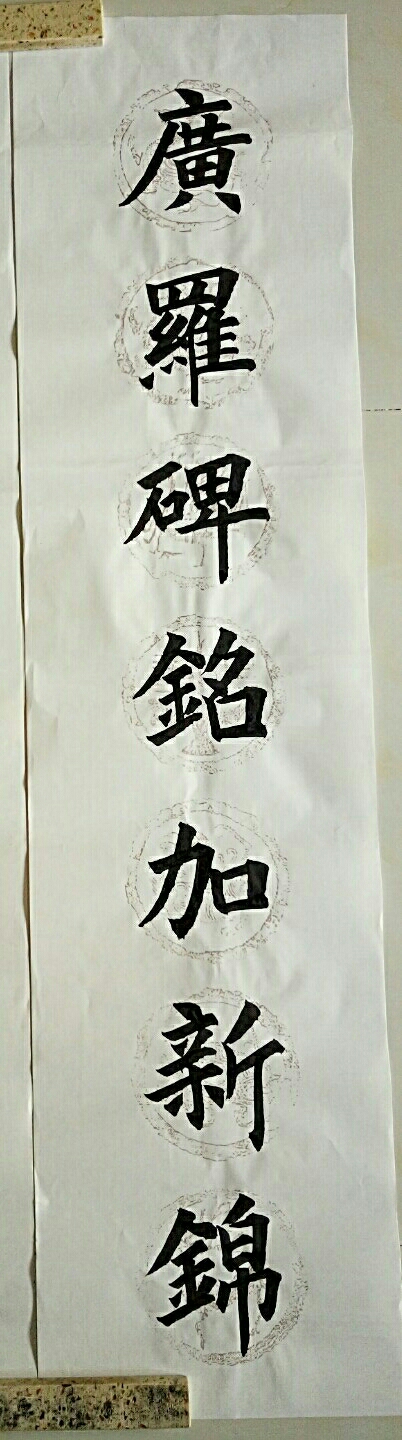 廣羅碑銘加新錦